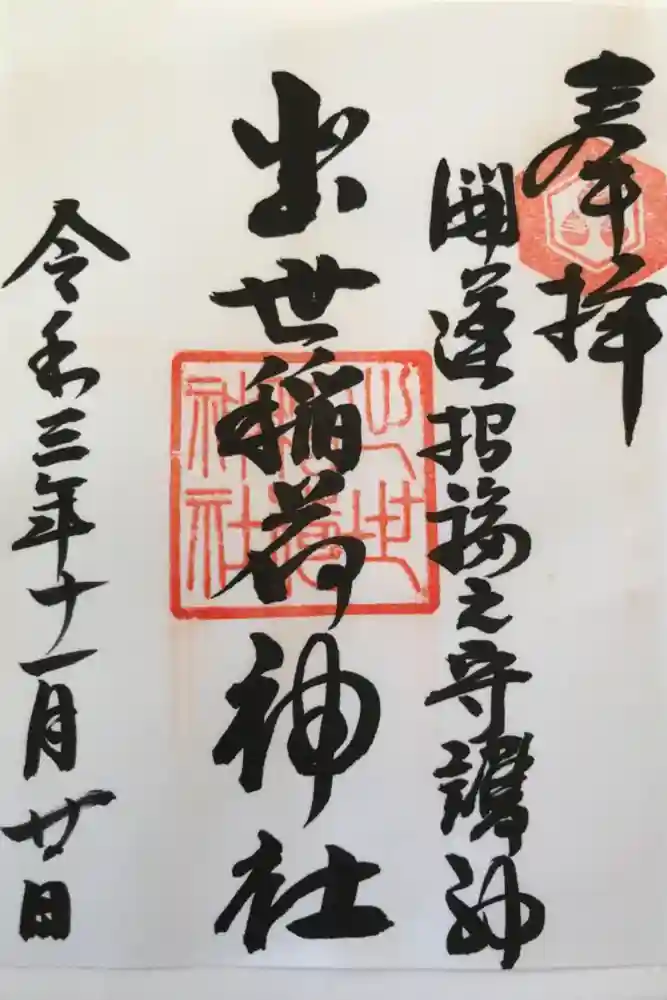 奉拝
開運招福之守護神
出世稲荷神社
令和三年十一月廿日
出世
稲荷
神社